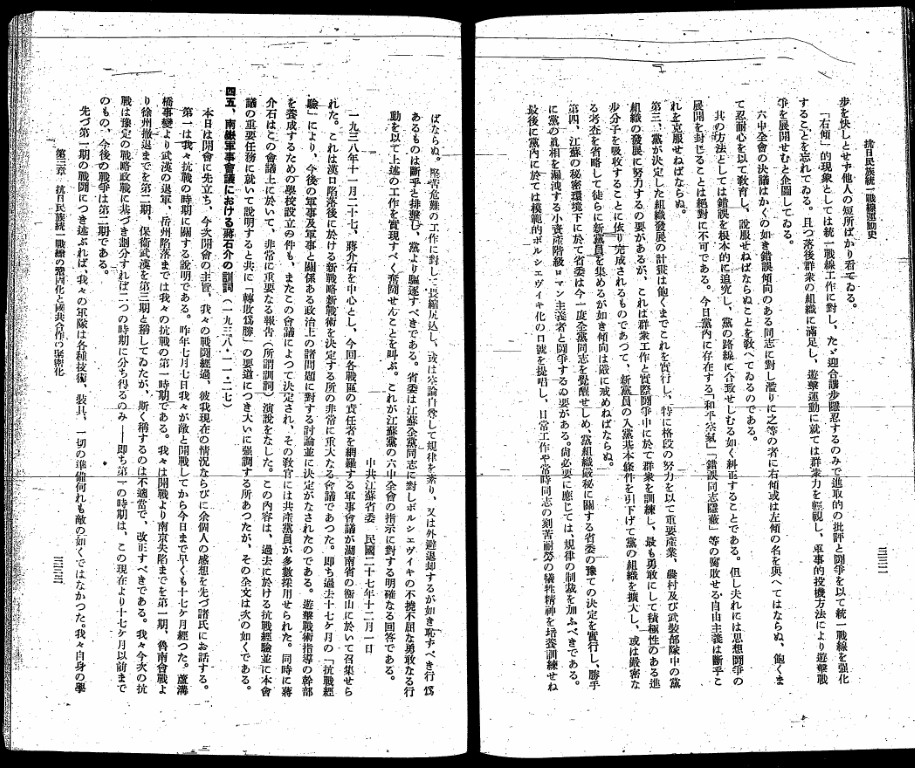 抗日民族統一戰線運動史
步を快しとせず他人の短所ばかり看てゐる。
「右傾」的現象としては統一戰線工作に對し、たゞ迎合讓步隱忍するのみで進取的の批評と鬪爭を以て統一戰線を强化
することを忘れてゐる。且つ落後群衆の組織に滿足し、遊擊運動に就ては群衆力を輕視し、軍事的投機方法により遊擊戰
爭を展開せむと企圖してゐる。
六中全會の決議はかくの如き錯誤傾向のある同志に對し濫りに之等の者に右傾或は左傾の名を與へてはならぬ、飽くま
で忍耐心を以て敎育し、說服せねばならぬことを敎へてゐるのである。
其の方法としては錯誤を根本的に追究し、黨の路線に合致せしむる如く糾正することである。但し夫れには思想鬪爭の
展開を封じることは絕對に不可である。今日黨內に存在する「和平空氣」「錯誤同志隱蔽」等の腐敗せる自由主義は斷乎こ
れを克服せねばならぬ。
第三、黨が決定した組織發展の計畫は飽くまでこれを實行し、特に格段の努力を以て重要產業、農村及び武裝部隊中の黨
組織の發展に努力するの要があるが、これは群衆工作と實際鬪爭中に於て群衆を訓練し、最も勇敢にして積極性のある進
步分子を吸收することに依り完成されるものであつて、新黨員の入黨基本條件を引下げて黨の組織を擴大し、或は嚴密な
る考査を省略して徒らに新黨員を集めるが如き傾向は嚴に戒めねばならぬ。
第四、江蘇の秘密環境下に於て省委は今一度全黨同志を覺醒せしめ、黨組織嚴秘に關する省委の豫ての決定を實行し、勝手
に黨の眞相を漏洩する小資產階級ロマン主義者と鬪爭するの要がある。尙必要に應じては、規律の制裁を加ふべきである。
最後に黨內に於ては模範的ボルシェヴィキ化の口號を提唱し、日常工作や當時同志の刻苦耐勞の犧牲精神を培養訓練せね
ばならぬ。堅苦危難の工作に對し畏縮尻込し、或は空論自尊して規律を紊り、又は外避退却するが如き恥ずべき行爲
あるものは斷乎之を排擊し、黨より驅逐すべきである。省委は江蘇全黨同志に對しボルシェヴィキの不撓不屈なる勇敢なる行
動を以て上述の工作を實現すべく奮鬪せんことを叫ぶ。これが江蘇黨の六中全會の指示に對する明確なる回答である。
中共江蘇省委 民國二十七年十二月一日
一九三八年十一月二十七、蔣介石を中心とし、今回各戰區の責任者を網羅する軍事會議が湖南省の衡山に於いて召集せら
れた。これは漢口陷落後に於ける新戰略戰術を決定する所の非常に重大なる會議であつた。卽ち過去十七ケ月の「抗戰經
驗」により、今後の軍事及軍事と關係ある政治上の諸問題に對する討論並に決定がなされたのである。遊擊戰術指導の幹部
を養成するための學校設立の件も、またこの會議によつて決定され、その敎官には共產黨員が多數採用せられた。同時に蔣
介石はこの會議上に於いて、非常に重要なる報告（所謂訓詞）演說をなした。この內容は、過去に於ける抗戰經驗並に本會
議の重要任務に就いて說明すると共に「轉敗爲勝」の要道につき大いに强調する所あつたが、その全文は次の如くである。
四五、南嶽軍事會議における蔣介石の訓詞（一九三八・一一・二七）
本日は開會に先立ち、今次開會の主旨、我々の戰鬪經過、彼我現在の情況ならびに余個人の感想を先づ諸氏にお話する。
第一は我々抗戰の時期に關する說明である。昨年七月七日我々が敵と開戰してから今日まで早くも十七ケ月經つた。蘆溝
橋事變より武漢の退軍、岳州陷落までは我々の抗戰の第一時期である。我々は開戰より南京失陷までを第一期、魯南會戰よ
り徐州撤退までを第二期、保衞武漢を第三期と稱してゐたが、斯く稱するのは不適當で、改正すべきである。我々今次の抗
戰は豫定の戰略政戰に基づき劃分すれば二つの時期に分ち得るのみ――卽ち第一の時期は、この現在より十七ケ月以前まで
のもの、今後の戰爭は第二期である。
先づ第一期の戰鬪につき述ぶれば、我々の軍隊は各種技術、裝具、一切の準備何れも敵の如くではなかつた。我々自身の學
第三章 抗日民族統一戰線の鞏固化と國共合作の緊密化